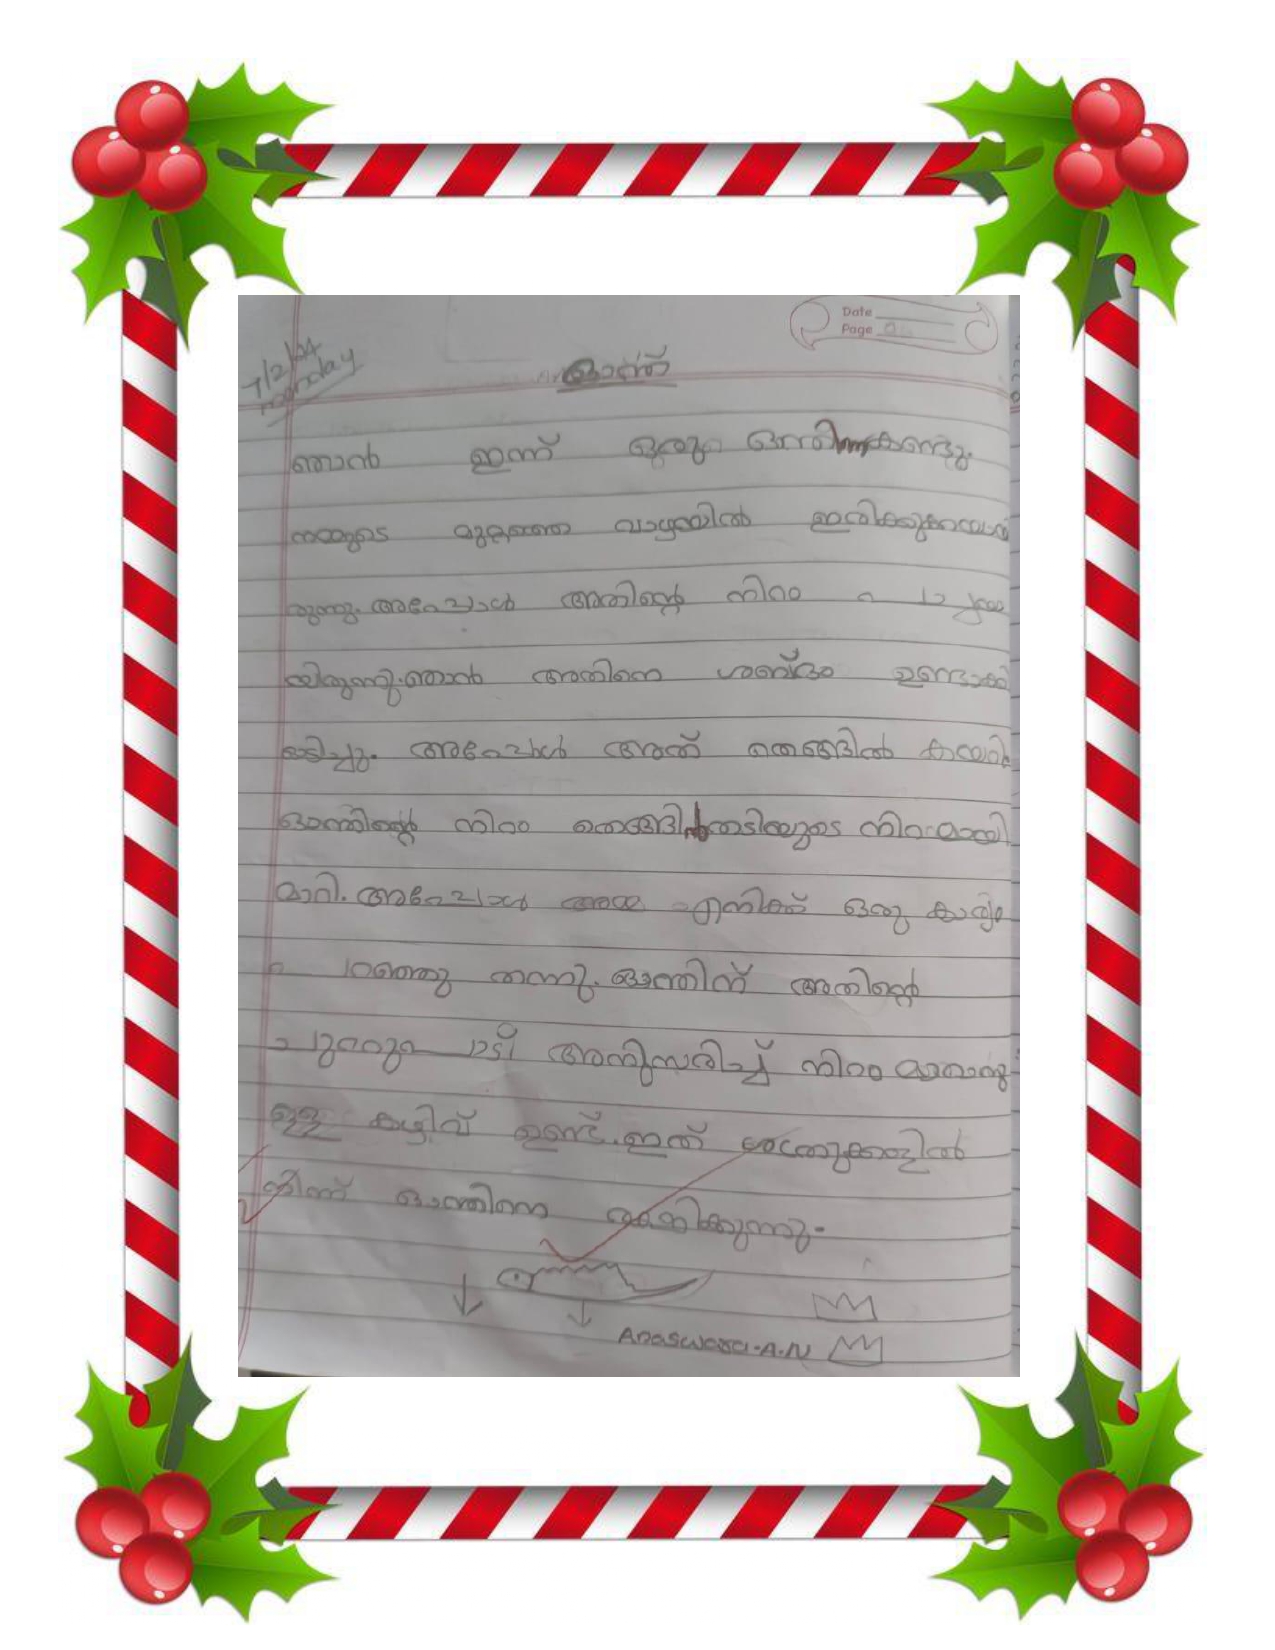 Date
Page
7/2/24
monday
ഓന്ത്
ഞാൻ ഇന്ന് ഒരു ഓന്തിനെ കണ്ടു.
വാഴയിൽ
അപ്പോൾ അതിന്റെ നിറം പച്ച
യിരുന്നു. ഞാൻ അതിനെ ശബ്ദം ഉണ്ടാക്കി
ഓടിച്ചു. അപ്പോൾ അത് തെങ്ങിൽ കയറി
ഓന്തിന്റെ നിറം തെങ്ങിൻതടിയുടെ നിറമായി
മാറി. അപ്പോൾ അമ്മ എനിക്ക് ഒരു കാര്യം
പറഞ്ഞു തന്നു. ഓന്തിന് അതിന്റെ
ചുറ്റുപാട് അനുസരിച്ച് നിറം മാറാനു
ള്ള കഴിവ് ഉണ്ട്. ഇത് ശത്രുക്കളിൽ
നിന്ന് ഓന്തിനെ രക്ഷിക്കുന്നു.
Anaswara.A.N